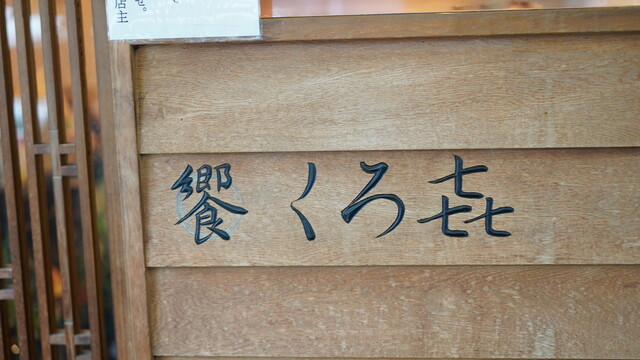 せ。
店主
饗 くろ㐂